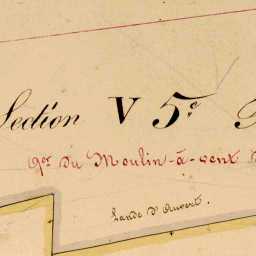 Section V 5e
Qer du Moulin-à-vent
Lande d'Auvert.